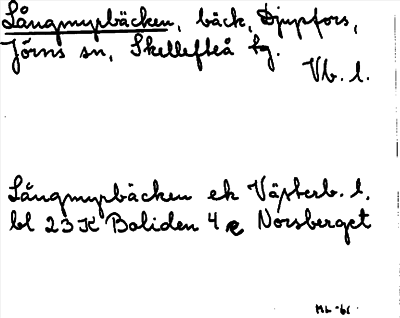 Långmyrbäcken, bäck, Djupfors,
Jörns sn, Skellefteå tg.
Vb. l.
Långmyrbäcken ek Västerb. l.
bl 23 K Boliden 4 e Norsberget
ML -61